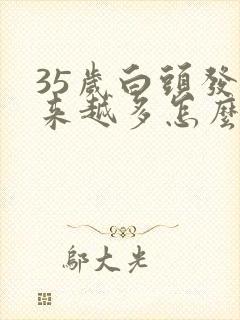 35歲白頭發
來越多怎麼
鄔大光